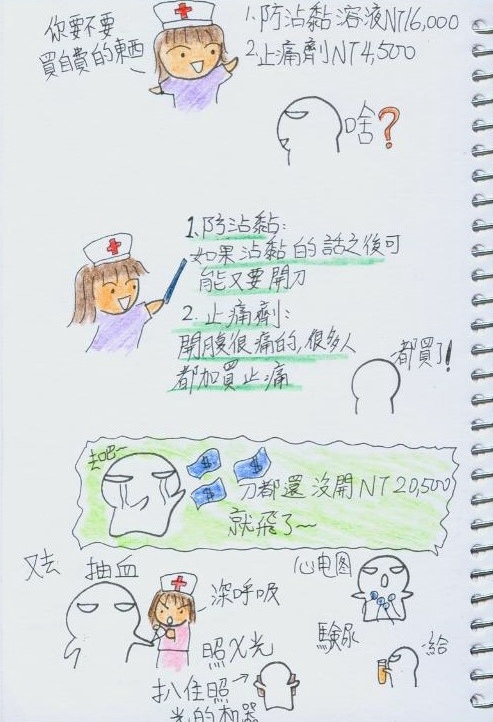 你要不要
買自費的東西
1.防沾黏溶液NT16,000
2.止痛劑NT4,500
啥?
1.防沾黏:
如果沾黏的話之後可
能又要開刀
2.止痛劑:
開腹很痛的,很多人
都加買止痛
都買了!
去吧~
$
$
$
刀都還沒開NT20,500
就飛了~
又去 抽血
深呼吸
心电图
照X光
驗尿
給
扒住照
光的机器